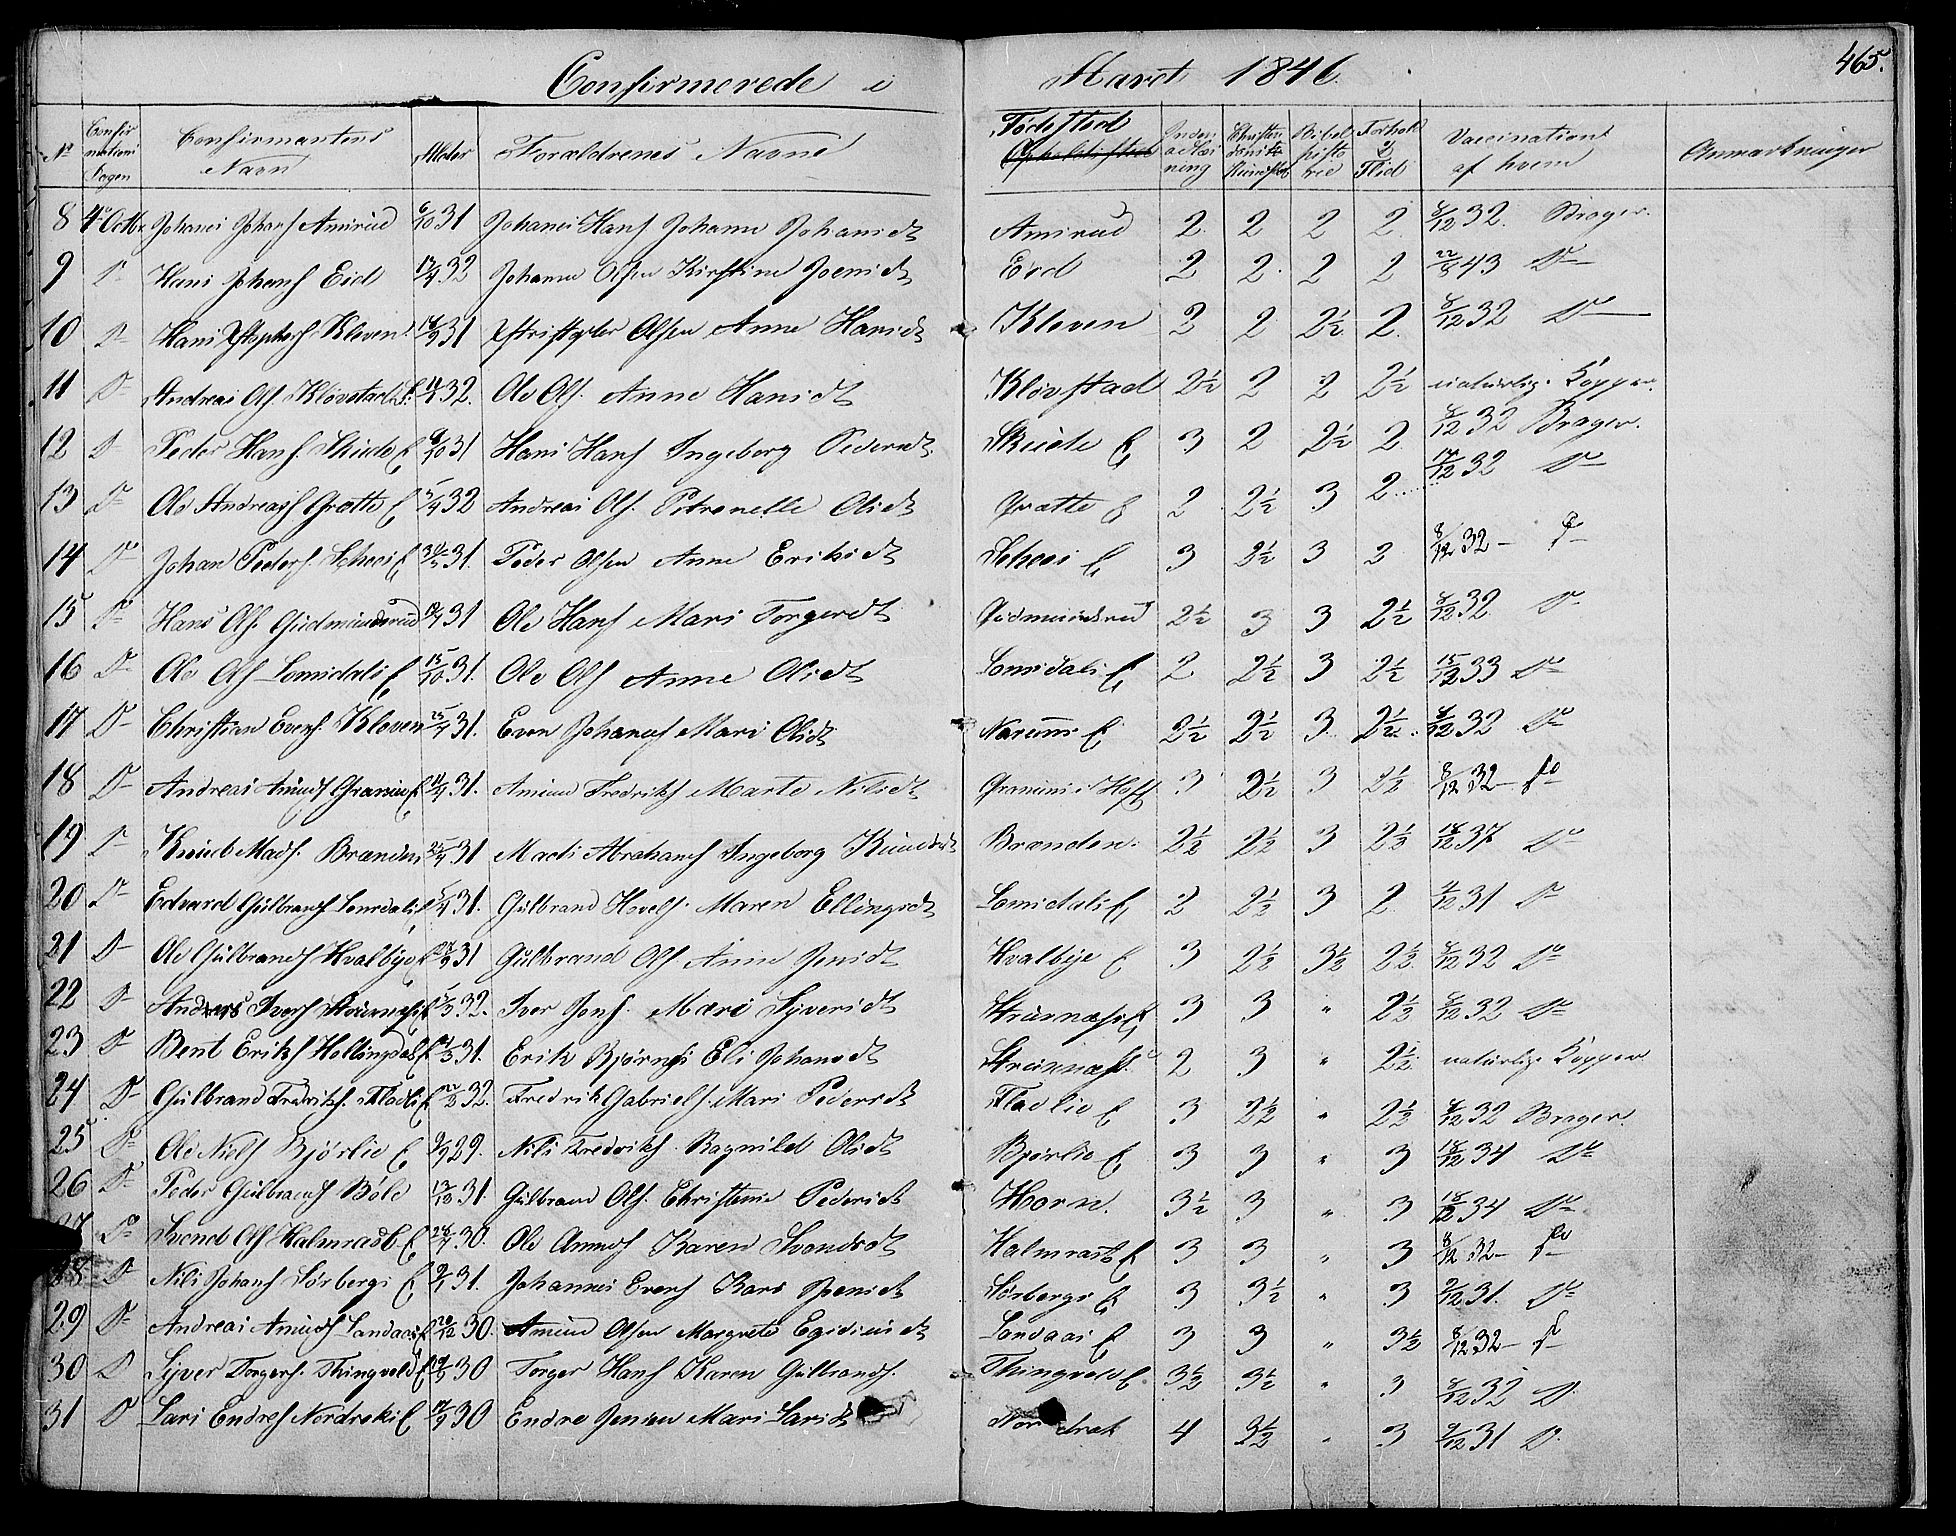 465.
Confirmerede i Marct 1846.
No Confirmations Dagen Confirmantens Navn Alder Forældrenes Navne Fødested Opholdssted Inden ad Læsning Christendoms Kundskab Bibelhistorie Forhold & Flid Vaccinationt af hvem Anmærkninger
8 4. Octbr Johanes Johans Amirud 6/10 31 Johanes Hans Johanne Johanisdt Amirud 2. 2 2 2. 8/12 32. Brager.
9 Do Hans Johans Eid 13/4 32 Johanne Olsen Kirstine Joensdt Eid 2 2. 2 2 22/8 43 Do
10 Do Hans Kleven 16/9 31 Olsen Anne Hansdt Kleven 2 2 2½ 2. 8/12 32 Do
11 Do Andreas Ols. Kløvstad 32. Ole Ols. Anne Hansdt Kløvstad 2½ 2 2 2½ naturlige Kopper.
12 Do Peder Hans. Skute E 8/10 31 Hans Hans Ingeborg Pedersdt. Skute E 3 2 2½ 2. 8/12 32 Brager.
13 Do Ole Andreas Grette E 5/4 32 Andreas Ols. Petronelle Olsdt Grette E 2 2½ 3 2 17/12 32 Do
14 Do Johan Peders. Schees E 31. Peder Olsen Anne Eriksdt Schees E 3 2½ 3 2 8/12 32 Do
15 Do Hans Ols. Gudmundsrud 31 Ole Hans Mari Torgersdt Gudmundsrud 2½ 3 3 2½ 8/12 32 Do
16 Do Ole Ols Lomsdals E 15/10 31. Ole Ols Anne Olsdt Lomsdals E 2 2½ 3 2½ 15/12 33 Do
17 Do Christian Evens. Kleven 25/4 31. Even Johanes Mari Olsdt Narums E 2½ 2½ 3 2½ 8/12 32 Do
18 Do Andreas Amunds Granum E 11/4 31. Amund Fredriks Marte Nilsdt Granum i Hoff 3 2½ 3 2½ 8/12 32 Do
19 Do Knud Mads. Branden 31 Mads Abrahams Ingeborg Knudsdt Brænden 2½ 2½ 3 2½ 18/12 37 Do
20 Do Edvard Gulbrands Lomsdals E 31. Gulbrand Hovels. Maren Ellingsdt Lomsdals E 2 2½ 3 2 31 Do
21 Do Ole Gulbrands Hvalbye E 31 Gulbrand Ols Anne Jensdt Hvalbye E 3 2½ 3½ 2½ 8/12 32 Do
22 Do Anders Ivers E 5/3 32. Iver Jens. Mari Syversdt 3 3 " 2½ 8/12 32 Do
23 Do Bent Eriks Hellingdal E 31. Erik Bjørns Eli Johansdt 2 3 " 2½ naturlige Kopper
24 Do Gulbrand Fredriks. Fladlie E 32. Fredrik Gabriels. Mari Pedersdt Fladlie E 3 2½ " 2½ 8/12 32 Brager.
25 Do Ole Niels Bjørlie E 29. Nils Fredriks. Ragnild Olsdt Bjørlie E 3 3 " 3 18/12 34 Do
26 Do Peder Gulbrands Bøle 13/12 31. Gulbran Ols. Christine Pedersdt Horn. 3½ 3 " 3 18/12 34 Do
27 Do Svend Ols Halmrast E 28/7 30. Ole Amunds Karen Svendsdt Halmrast E 3 3 " 3 8/12 32 Do
28 Do Nils Johans Sørbergs E 31. Johannes Evens Kari Joensdt Sørbergs E 3 3½ " 3 31. Do
29 Do Andreas Amunds Landaas E 20/12 30. Amund Olsen Margrete Egidiusdt Landaas E 3 3 " 3½ 8/12 32 Do
30 D Syver Torgers. Thingveld E 30 Torger Hans Karen Gulbrands. Thingveld E 3½ 3½ " 3 8/12 32 D
31 D Lars Endres Nordraks E 17/9 30 Endre Jensen Mari Larsdt Nordrak 4 3½ " 3 31 D.